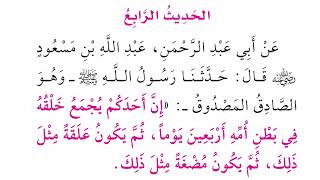 الحَدِيثُ الرَّابِعُ
عَنْ أَبِي عَبْدِ الرَّحْمَنِ، عَبْدِ اللَّهِ بْنِ مَسْعُودٍ
رضي الله عنه قَالَ: حَدَّثَنَا رَسُولُ اللَّهِ ﷺ ـ وَهُوَ
الصَّادِقُ المَصْدُوقُ ـ: «إِنَّ أَحَدَكُمْ يُجْمَعُ خَلْقُهُ
فِي بَطْنِ أُمِّهِ أَرْبَعِينَ يَوْماً، ثُمَّ يَكُونُ عَلَقَةً مِثْلَ
ذَلِكَ، ثُمَّ يَكُونُ مُضْغَةً مِثْلَ ذَلِكَ.